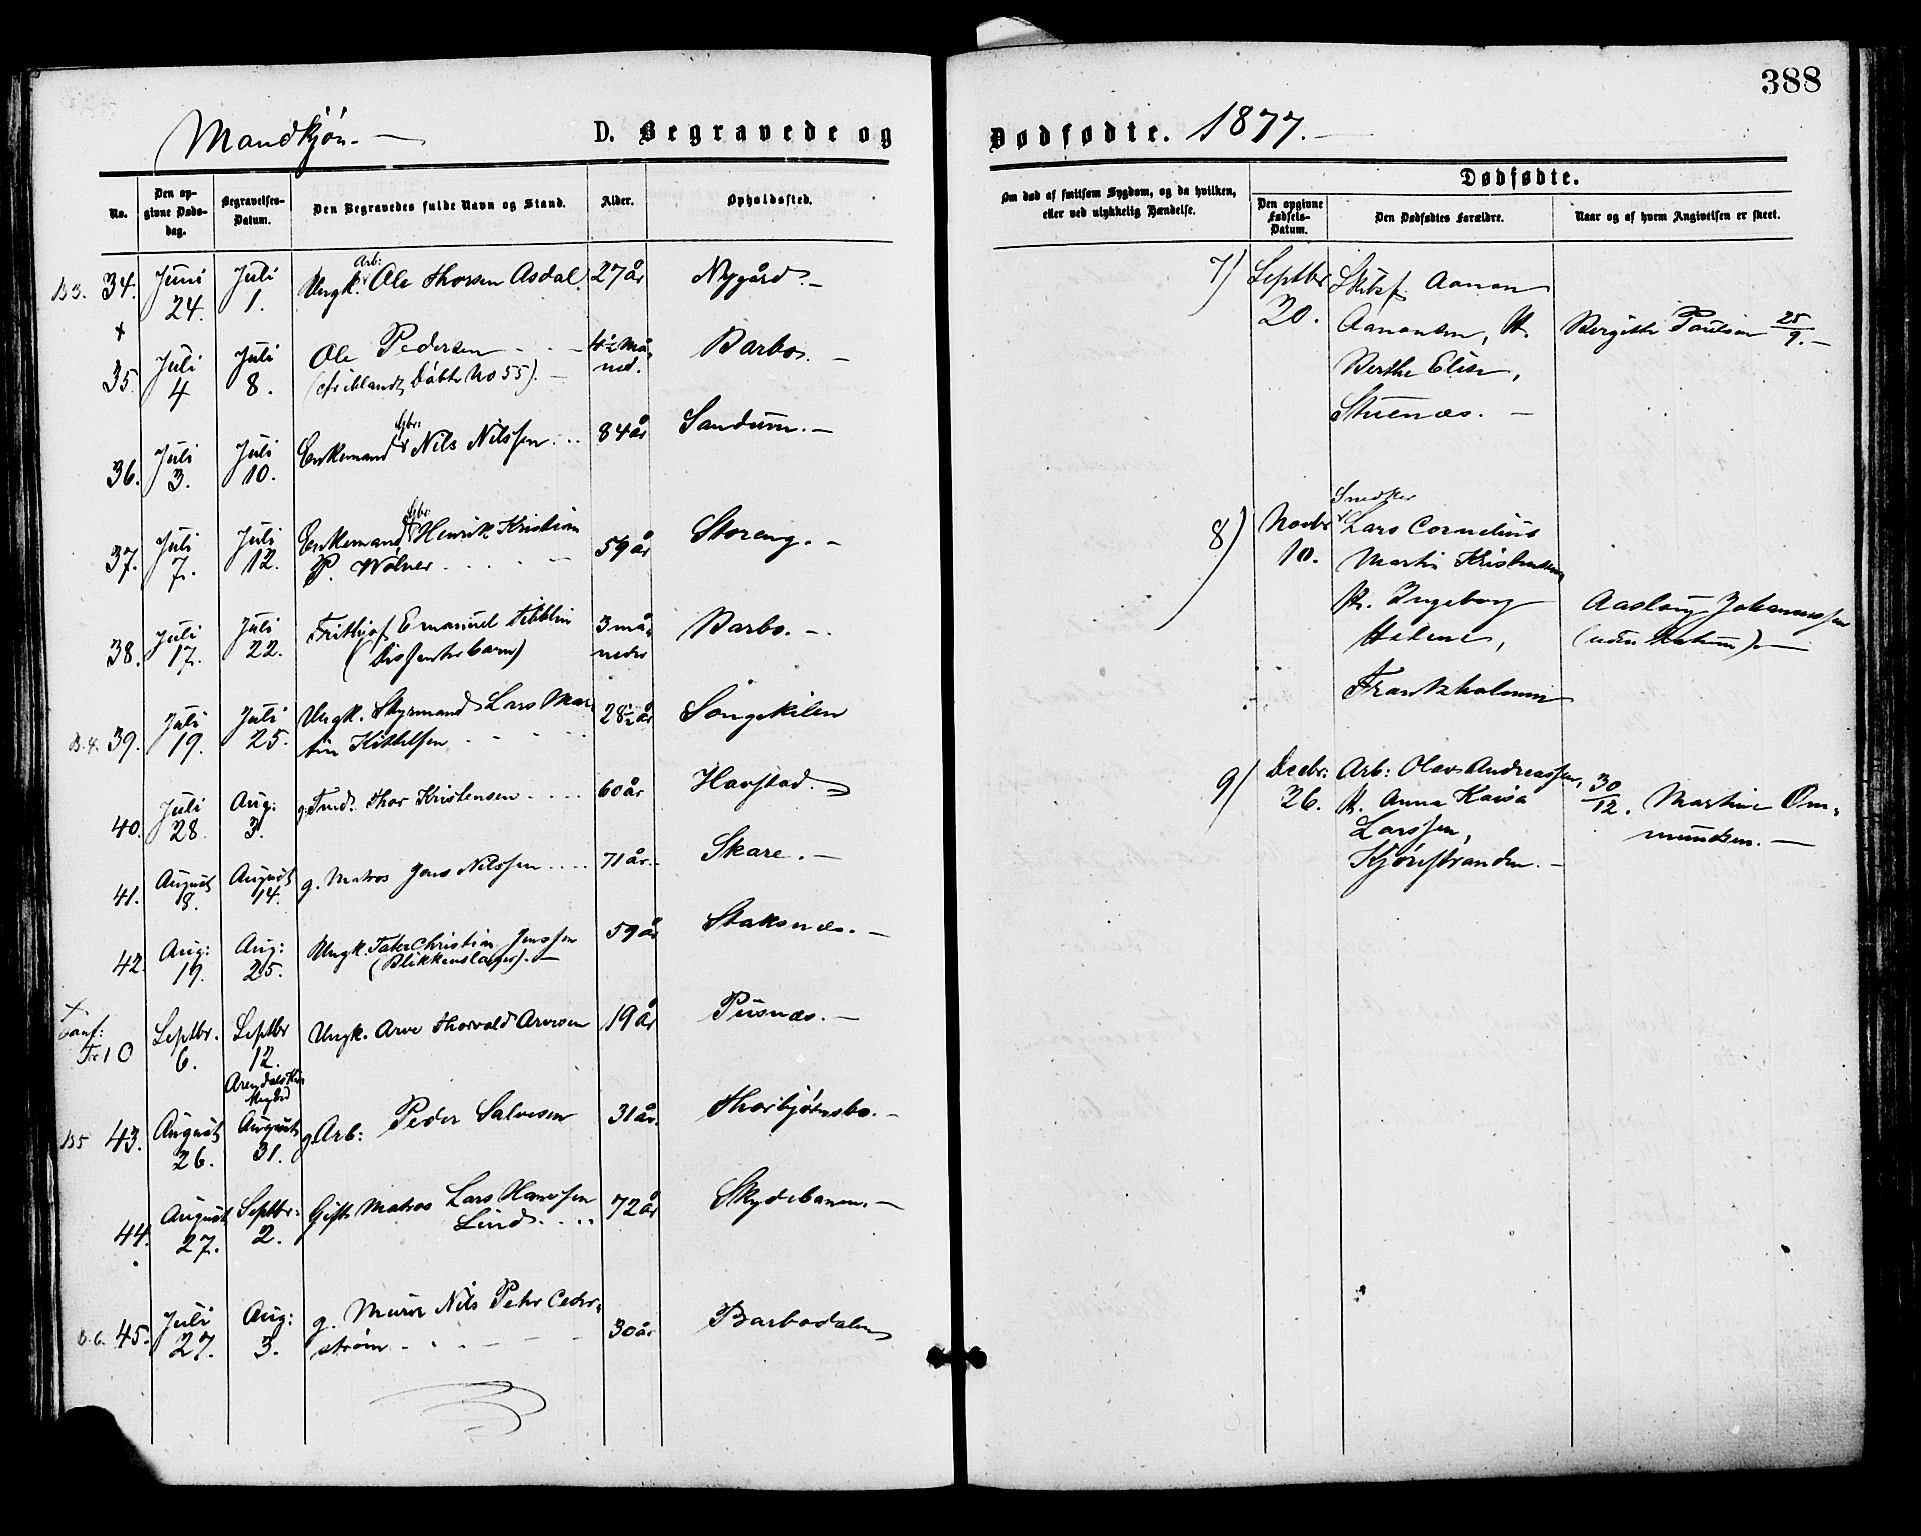 388
Mandkjøn. — D. Begravede og Dødfødte. 1877. —
No.
Den opgivne Døds-dag.
Begravelses-Datum.
Den Begravedes fulde Navn og Stand.
Alder.
Opholdssted.
Om død af smitsom Sygdom, og da hvilken, eller ved ulykkelig Hændelse.
Dødfødte.
Den opgivne Fødsels-Datum.
Den Dødfødtes Forældre.
Naar og af hvem Angivelsen er skeet.
B3. 34. Juni 24. Juli 1. Ungk. Arb: Ole Thorsen Asdal. 27 år Nygård. —
+
35. Juli 4 Juli 8. Ole Pedersen - - - 4½ Må- Barbo. —
Døbte No 55). — ned.
36. Juli 3. Juli 10. Enkemand Nils Nilssen . . . 84 år Sandum. —
37. Juli 7. Juli 12. Enkemand Henrik Kristian
P. Wølner - - - - 59 år Storeng. —
38. Juli 17. Juli 22. Frithjof Emanuel 3 må- Barbo. —
(Dissenterbarn) neder
B.4. 39. Juli 19. Juli 25. Ungk. Styrmand Lars Mar- 28½ år Songekilen
tin Kittelsen - - - - -
40. Juli 28. Aug: 3. g. Thor Kristensen - - - - 60 år Havstad.
41. August 18. August 14. g. Matros Jens Nilssen . . . . 71 år. Skare. —
42. Aug: 19. Aug: 25. Ungk. Tater Christian Jenssen 59 år Staksnæs. —
(Blikkenslager). —
+
Tr 10 Septbr. 6. Septbr 12. Ungk. Arve Thorvald Arvesen 19 år Pusnæs. —
Arendals
B5 43. August 26. August 31. g. Arb: Peder Salvesen 31 år. Thorbjørnsbo. —
44. August 27. Septbr: 2. Gift Matros Lars Hanssen 72 år Skydebanen. —
Lind. . . .
B.6. 45. Juli 27. Aug: 3. g. Murer Nils Petter Ceder-
strøm - - - - 30 år Barbodalen
7) Septbr 20. Aanon
Aanonsen, H. Bergithe Paulsen 25/9. —
Berthe Elise,
Stuenæs. —
8) Novbr 10. Snedker
Lars Cornelius
Martin Kristensen
H. Ingeborg Aaslaug Johannessen
Helene, (uden Datum). —
Frantzholmen
9) Decbr: 26. Arb: Olav Andreassen, 30/12. Martine Om-
H. Anna Kaisa mundsen. —
Larssen,
Kjørrestranden. —